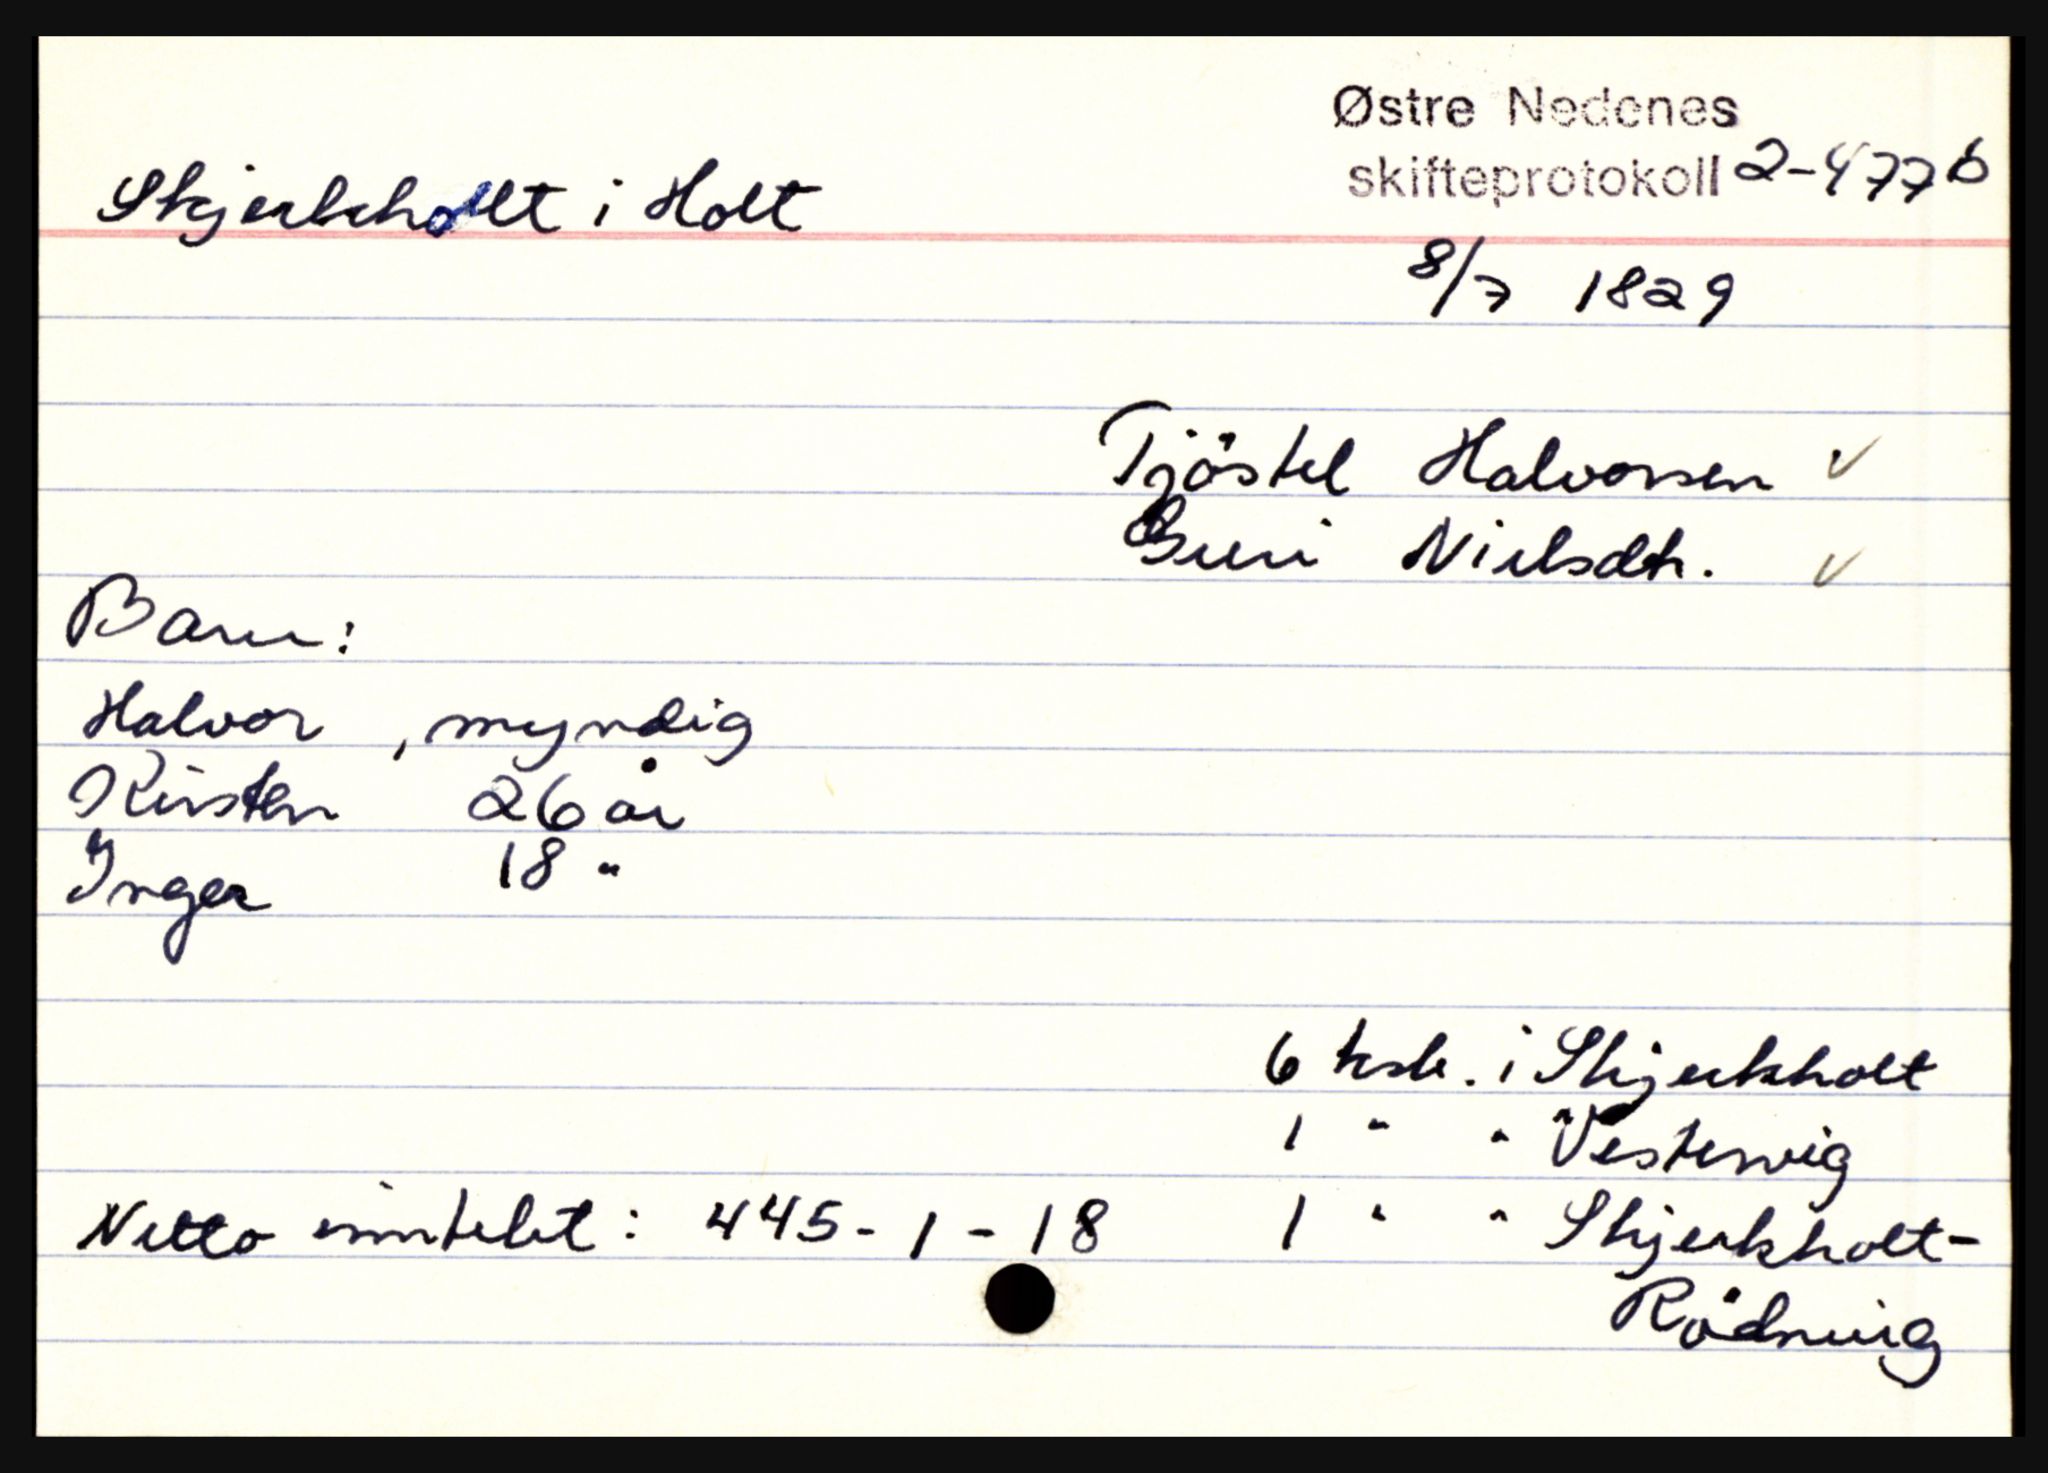 Østre Nedenes
skifteprotokoll 2-477b
Skjerkholt i Holt
8/7 1829
Tjöstel Halvorsen ✓
Guri Nielsdtr. ✓
Barn:
Halvor , myndig
Kirsten 26 år
Inger 18 "
6 ksk. i Skjerkholt
1 " " Vestervig
Netto inntekt : 445 - 1 - 18 1 " " Skjerkholt-
Rödning